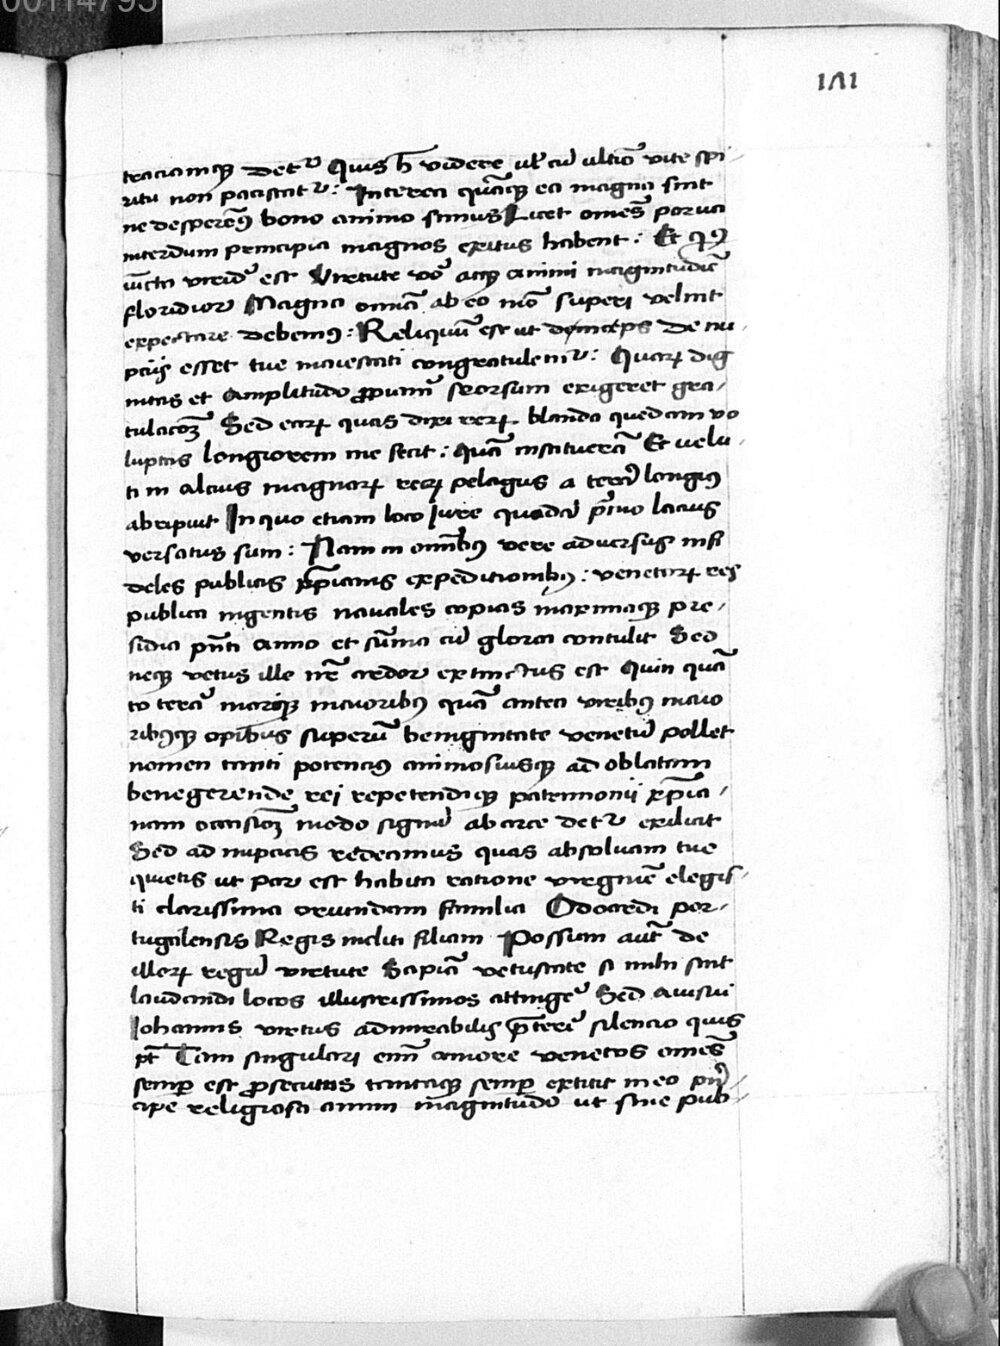 00114795
1Λ1
traciamqꝫ detᷣ Quis h̄ videre ul̓ cū ultīo vite spi-
ritu non paciscatᷣ: Interea quāqꝫ ea magna sint
ne desperemꝰ bono animo simus Licet omēs parva
interdum principia magnos exitus habent: Et
iūcta est Virtute vō atqꝫ animi magnitudīe
floridior Magna omīa ab eo mō superi velint
expectare debemꝰ: Reliquū est ut deinceps de nu-
pciis esset tue maiestati congratulemᷣ: Quarꝝ dig
nitas et amplitudo ꝓpriam̄ seorsum exigeret gra-
tulacōꝫ Sed earꝝ quas dixi rerꝝ blanda quedam vo
luptas longiorem me fecit: quā institueram̄ Et velu-
ti in altius magnarꝝ rerꝝ pelagus a terrā longiꝰ
abripuit In quo etiam loco iure quodā p̄mo lacius
versatus sum: Nam in omībꝰ vere adversus infi
deles publicis xp̄ianis expeditionibꝫ: venetarꝝ res
publica ingentis navales copias maximaqꝫ pre-
sidia pn̄ti anno et sūma cū gloria contulit Sed
neqꝫ vetus ille nr̄e ardor extinctus est Quin quā
to terrā mariqꝫ maioribꝰ quā antea viribꝰ maio
ribꝰqꝫ opibus superū benignitate venetū pollet
nomen tanti potencius animosiusqꝫ ad oblatam
benegerende rei repetendiqꝫ patrimonii xp̄ia-
nam occasiōꝫ modo signū ab arce detᷣ exiliet
Sed ad nupcias redeamus quas absolvam tue
quietis ut par est habita ratione virginē elegis-
ti clarissima oriundam familia Odoardi por-
tugalensis Regis incliti filiam Possum aūt de
illorꝝ regū virtute Sapīa vetustate si mihi sint
laudandi locos illustrissimos attingeᷣ Sed Avisui
Johannis virtus admirabilis p̄terirē silencio quis
pt̄ Tam singulari enī amore venetos omēs
semꝑ est ꝓsecutus tantaqꝫ semꝑ extitit in eo prī-
cipe religiosa animi magnitudo ut sine pub-